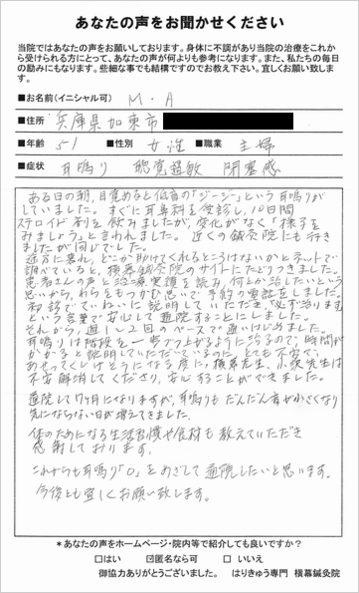 あなたの声をお聞かせください
当院ではあなたの声をお願いしております。身体に不調があり当院の治療をこれか
ら受けられる方にとって、あなたの声が何よりも参考になります。また、私たちの毎日
の励みにもなります。些細な事でも結構ですのでお教え下さい。宜しくお願い致しま
す。
■お名前(イニシャル可) M・A
■住所 兵庫県加東市
■年齢 51 ■性別 女性 ■職業 主婦
■症状 耳鳴り 聴覚過敏 閉塞感
ある日の朝、目覚めると低音の「ジージー」という耳鳴りが
していました。すぐに耳鼻科を受診し、10日間
ステロイド剤を飲みましたが、変化がなく「様子を
みましょう」と言われました。近くの鍼灸院にも行き
ましたが同じでした。
途方に暮れ、どこか助けてくれるところはないかとネットで
調べていると、横幕鍼灸院のサイトにたどりつきました。
患者さんの声と治療実績を読み、何とか治したいという
思いから、わらをもつかむ思いで予約の電話をしました。
初診でていねいに説明していただき「必ず治ります」
という言葉で安心して通院することにしました。
それから、週1〜2回のペースで通いはじめました。
耳鳴りは階段を一歩ずつ上がるように治るので、時間が
かかると説明していただいているのに、とても不安で、
あせってしまいそうになる度に、横幕先生、小俣先生は
不安解消してくださり、安心することができました。
通院して7ヶ月になりますが、耳鳴りもだんだん音が小さくなり
気にならない日が増えてきました。
体のためになる生活習慣や食材も教えていただき
感謝しております。
これからも耳鳴り「0」をめざして通院したいと思います。
今後とも宜しくお願い致します。
*あなたの声をホームページ・院内等で紹介しても良いですか?
□はい ☑匿名なら可 □いいえ
御協力ありがとうございました。 はりきゅう専門 横幕鍼灸院